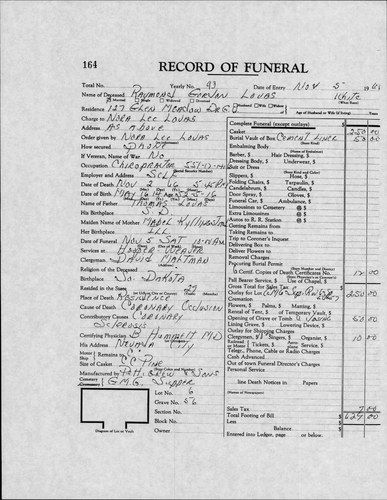 164 RECORD OF FUNERAL
Total No. Yearly No. 93 Date of Entry Nov 5 19
Name of Deceased Raymond Gorvan Lovas White
Married Single Widowed Divorced Husband Wife Widow (What Race)
Residence 127 Glen Meadow Dr G.V. Age of Husband or Wife (if living) Years
Charge to Nora Lee Lovas
Address As Above
Order given by Nora Lee Lovas
How secured Phone
If Veteran, Name of War No
Occupation Chiropractor
Employer and Address Self
Date of Death Nov 2 66
Date of Birth May
Name of Father Thomas Lovas
His Birthplace S.D.
Maiden Name of Mother Mabel
Her Birthplace Ill
Date of Funeral Nov 5 Sat
Services at Hooper & Weaver
Clergyman, David Maitman
Religion of the Deceased
Birthplace So. Dakota
Resided in the State 22
Place of Death Residence
Cause of Death Coronary Occlusion
Contributory Causes Coronary
Sclerosis
Certifying Physician B Hummelt MD
His Address Nevada City
Motor Remains to C
Size of Casket CC Pine
Manufactured by
Cemetery G.M.G. Supper
Lot No. 6
Grave No. 56
Section No.
Block No.
Owner
Diagram of Lot or Vault
Complete Funeral (except outlays) $
Casket 250 00
Burial Vault of Box Cement Liner 50 00
Embalming Body
(Name of Embalmer)
Barber, $ Hair Dressing, $
Dressing Body, $ Underwear, $
Suit or Dress
(State Kind and Color)
Slippers, $ Hose, $
Folding Chairs, $ Tarpaulin, $
Candelabrum, $ Candles, $
Door Spray, $ Gloves, $
Funeral Car, $ Ambulance, $
Limousines to Cemetery @ $
Extra Limousines @ $
Autos to R. R. Station @ $
Getting Remains from
Taking Remains to
Trip to Coroner's Inquest
Delivering Box to
Deliver Flowers to
Removal Charges
Procuring Burial Permit
6 Certif. Copies of Death Certificates No. 12 00
Pall Bearer Service, $ Use of Chapel, $
Gross Total for Sales Tax
Outlay for Lot 250 00
Flowers, $ Palms, $ Matting, $
Rental of Tent, $ of Temporary Vault, $
Opening of Grave or Tomb G Young 50 00
Lining Grave, $ Lowering Device, $
Outlay for Shipping Charges
Clergyman, $ Singers, $ Organist, $ 10
Railroad or Motor Tickets, $ Aero Service, $
Telgr., Phone, Cable or Radio Charges
Cash Advanced
Out of town Funeral Director's Charges
Personal Service
line Death Notices in Papers
(Names of Newspapers)
Sales Tax 7 00
Total Footing of Bill $ 629 00
Less $
Balance $
Entered into Ledger, page or below.